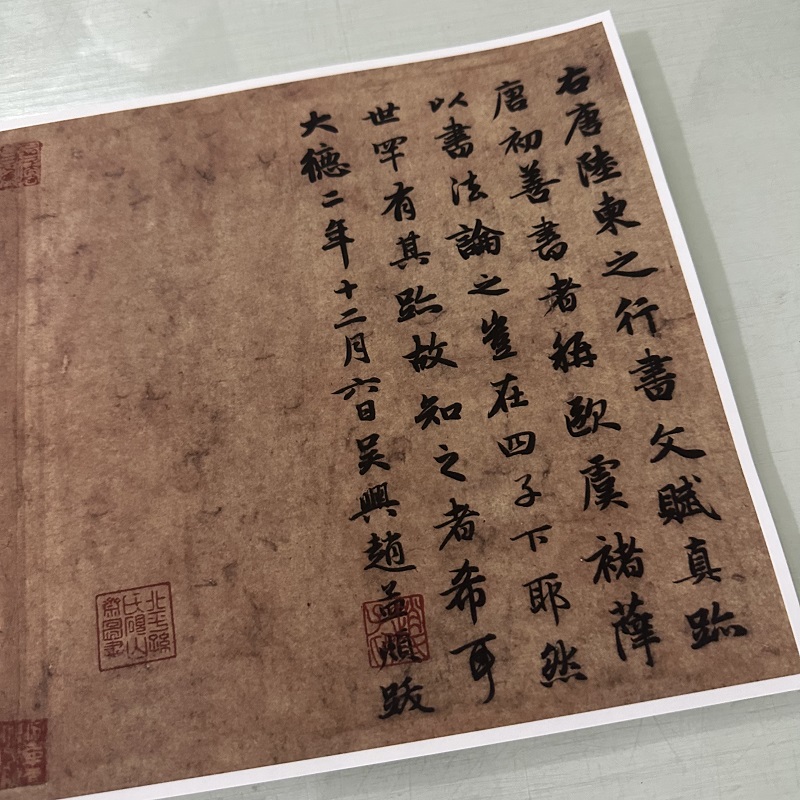 右唐陸柬之行書文賦真跡
唐初善書者稱歐虞褚薛
以書法論之豈在四子下耶然
世罕有其跡故知之者希耳
大德二年十二月六日吳興趙孟頫跋
北平孫
氏硯山
齋圖書